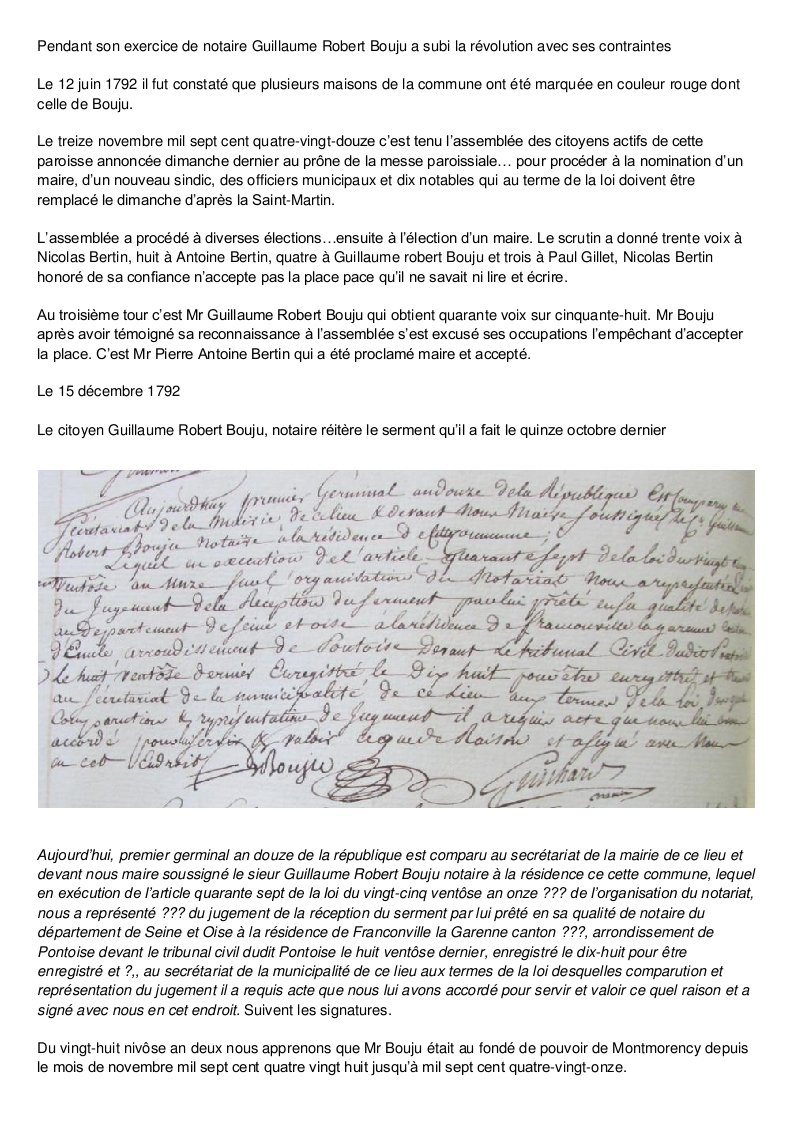 Pendant son exercice de notaire Guillaume Robert Bouju a subi la révolution avec ses contraintes
Le 12 juin 1792 il fut constaté que plusieurs maisons de la commune ont été marquée en couleur rouge dont
celle de Bouju.
Le treize novembre mil sept cent quatre-vingt-douze c’est tenu l’assemblée des citoyens actifs de cette
paroisse annoncée dimanche dernier au prône de la messe paroissiale… pour procéder à la nomination d’un
maire, d’un nouveau sindic, des officiers municipaux et dix notables qui au terme de la loi doivent être
remplacé le dimanche d’après la Saint-Martin.
L’assemblée a procédé à diverses élections…ensuite à l’élection d’un maire. Le scrutin a donné trente voix à
Nicolas Bertin, huit à Antoine Bertin, quatre à Guillaume robert Bouju et trois à Paul Gillet, Nicolas Bertin
honoré de sa confiance n’accepte pas la place pace qu’il ne savait ni lire et écrire.
Au troisième tour c’est Mr Guillaume Robert Bouju qui obtient quarante voix sur cinquante-huit. Mr Bouju
après avoir témoigné sa reconnaissance à l’assemblée s’est excusé ses occupations l’empêchant d’accepter
la place. C’est Mr Pierre Antoine Bertin qui a été proclamé maire et accepté.
Le 15 décembre 1792
Le citoyen Guillaume Robert Bouju, notaire réitère le serment qu’il a fait le quinze octobre dernier
Aujourdhuy premier Germinal an douze de la République Est Comparu au
Secrétariat de la Mairie, de ce lieu & devant Nous Maire Soussigné le Sr Guillaume
Robert Bouju Notaire a la résidence de Cette Commune;
Lequel en execution de l'article quarante Sept de la loi du vingt cinq
Ventôse an onze Sur l'organisation du Notariat Nous a représenté
du Jugement de la Réception du Serment par lui prêté en sa qualité de
au Departement de Seine et oise a la résidence de franconville la garenne
d'Emile arroudissement de Pontoise Devant Le tribunal Civil dudit Pontoise
Le huit ventôse dernier Enregistré le Dix huit pour être enregistré et
au Sécretariat de la municipalité de ce Lieu aux termes de la loi
Comparution & représentation de Jugement il a requis acte que nous lui avons
accordé pour servir & valoir ce que de Raison et a signé avec Nous
en cet Endroit
Bouju
Aujourd’hui, premier germinal an douze de la république est comparu au secrétariat de la mairie de ce lieu et
devant nous maire soussigné le sieur Guillaume Robert Bouju notaire à la résidence ce cette commune, lequel
en exécution de l’article quarante sept de la loi du vingt-cinq ventôse an onze ??? de l’organisation du notariat,
nous a représenté ??? du jugement de la réception du serment par lui prêté en sa qualité de notaire du
département de Seine et Oise à la résidence de Franconville la Garenne canton ???, arrondissement de
Pontoise devant le tribunal civil dudit Pontoise le huit ventôse dernier, enregistré le dix-huit pour être
enregistré et ?,, au secrétariat de la municipalité de ce lieu aux termes de la loi desquelles comparution et
représentation du jugement il a requis acte que nous lui avons accordé pour servir et valoir ce quel raison et a
signé avec nous en cet endroit. Suivent les signatures.
Du vingt-huit nivôse an deux nous apprenons que Mr Bouju était au fondé de pouvoir de Montmorency depuis
le mois de novembre mil sept cent quatre vingt huit jusqu’à mil sept cent quatre-vingt-onze.